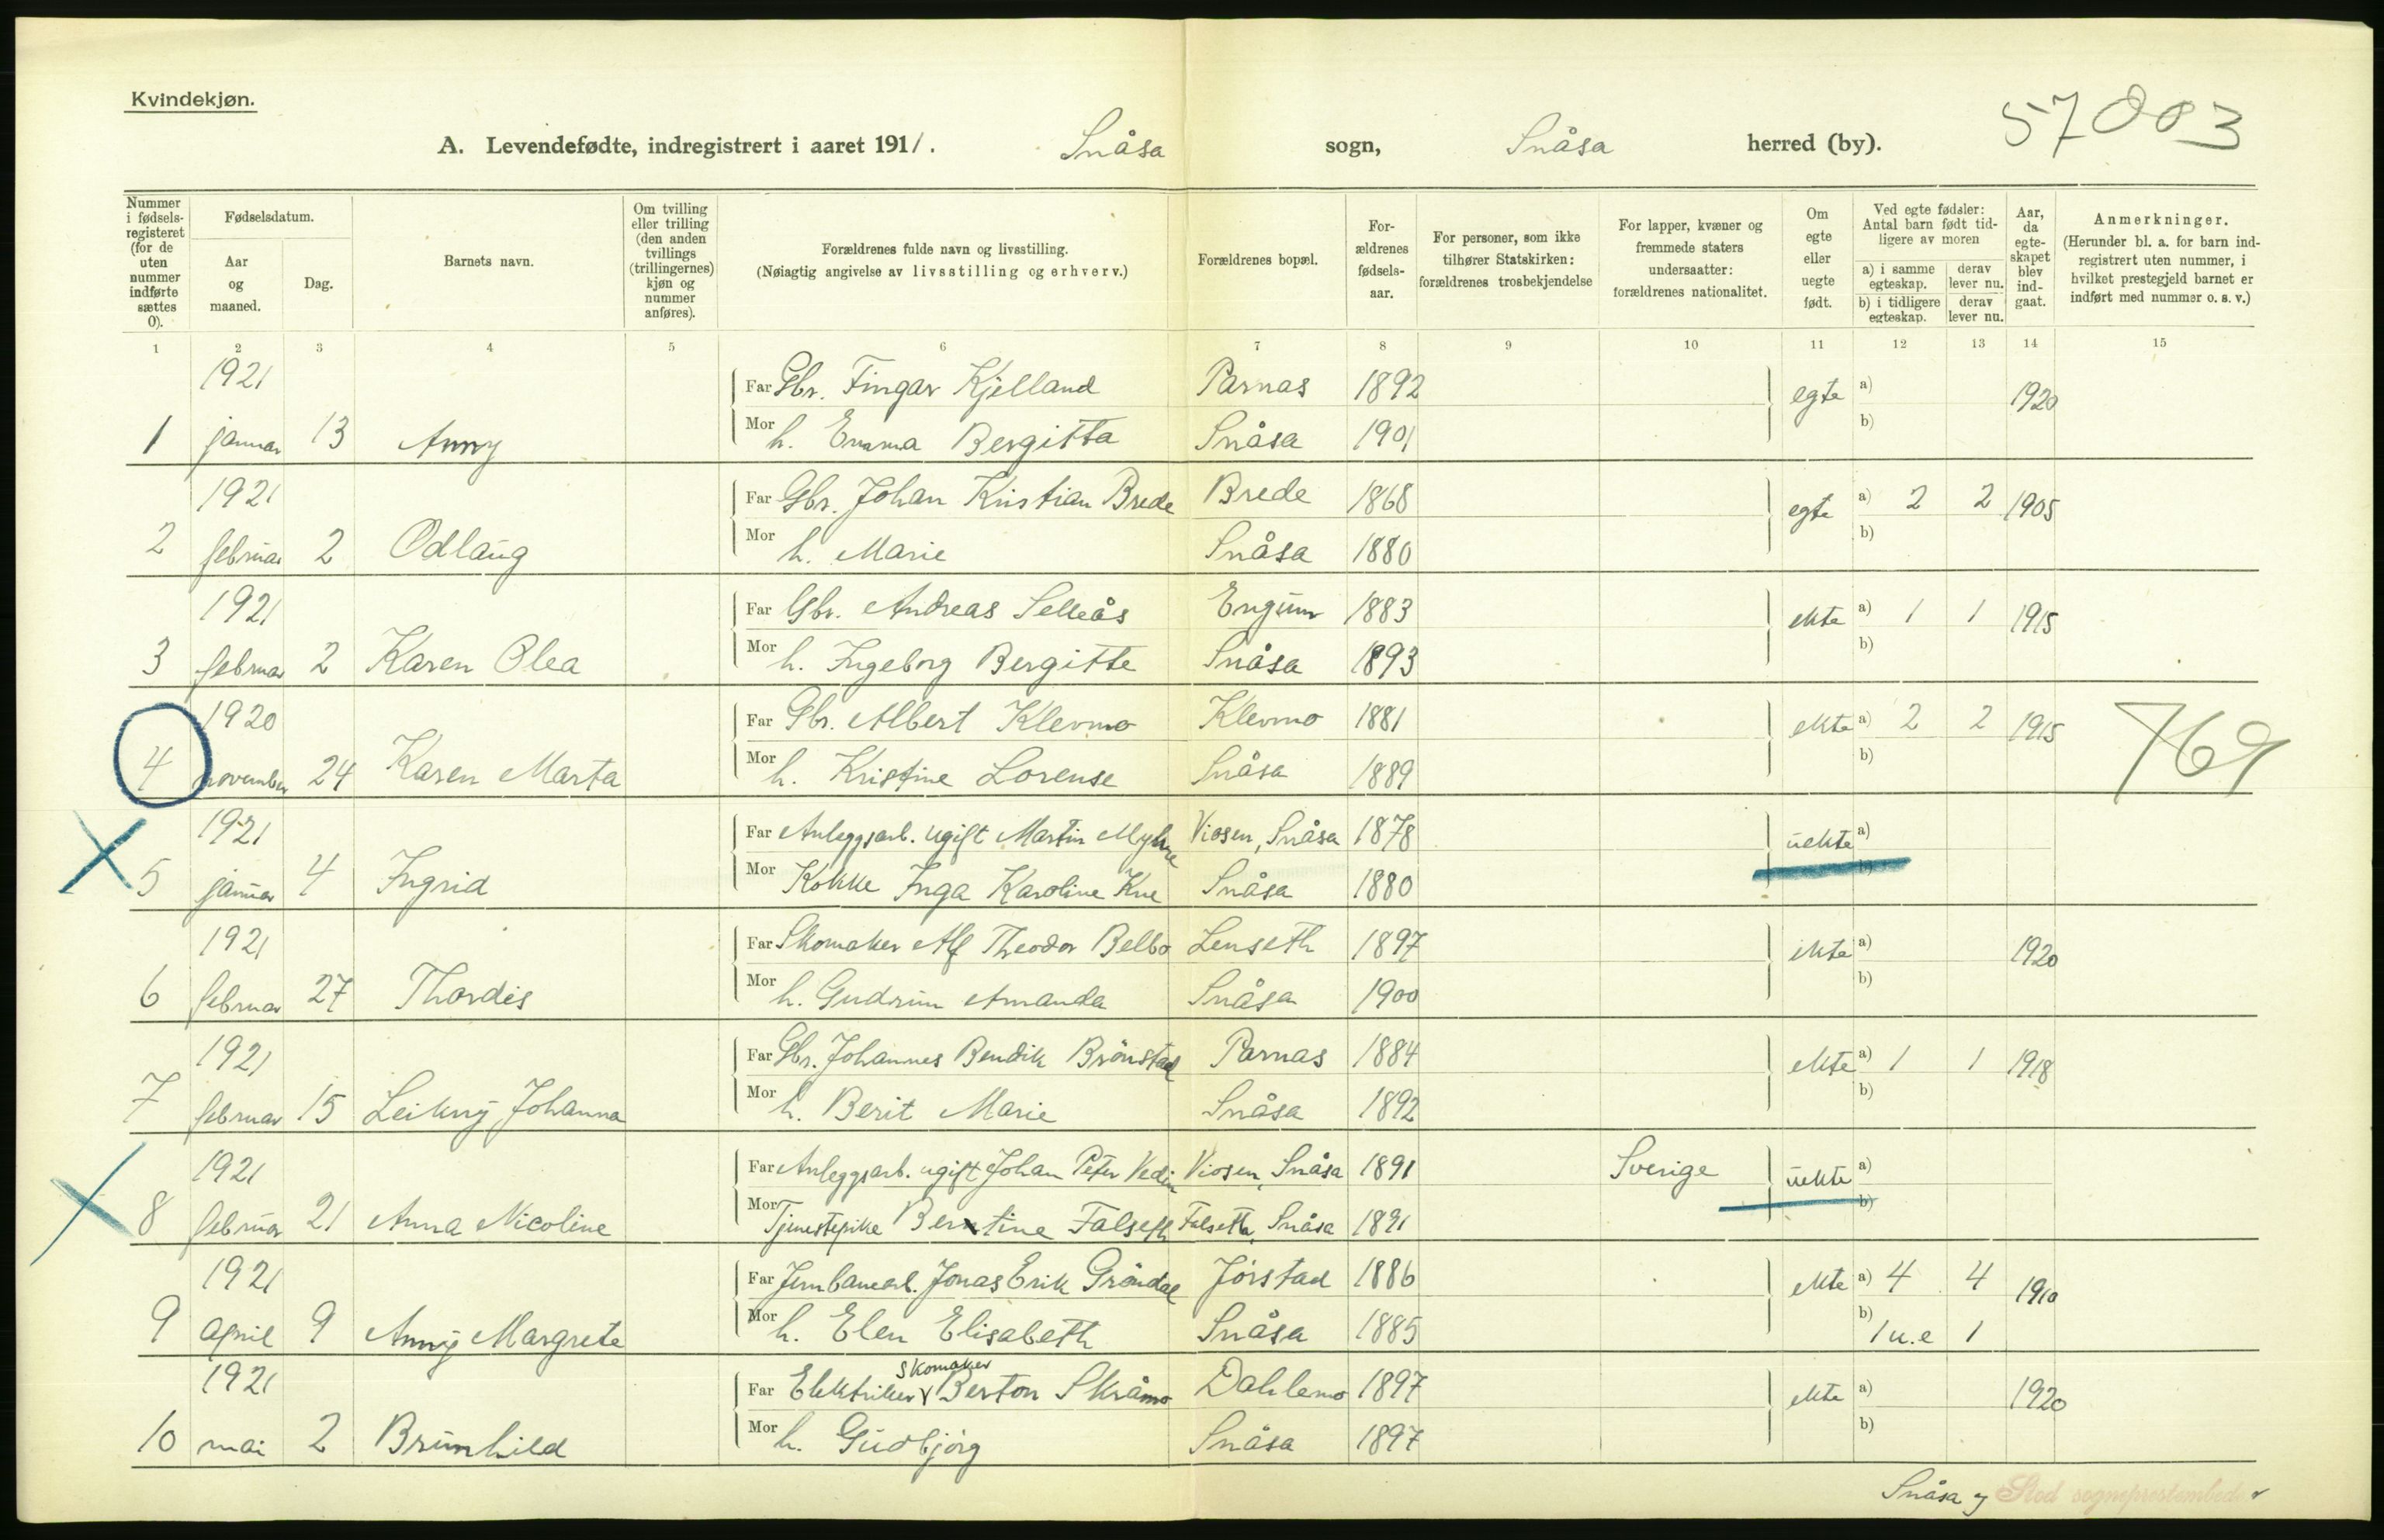 Kvindekjøn.
57003
A. Levendefødte, indregistrert i aaret 1911. Snåsa sogn, Snåsa herred (by).
Nummer i fødsels-registeret (for de uten nummer indførte sættes 0).
Fødselsdatum.
Aar og maaned.
Dag.
Barnets navn.
Om tvilling eller trilling (den anden tvillings (trillingernes) kjøn og nummer anføres).
Forældrenes fulde navn og livsstilling.
(Nøiagtig angivelse av livsstilling og erhverv.)
Forældrenes bopæl.
For-ældrenes fødsels-aar.
For personer, som ikke tilhører Statskirken: forældrenes trosbekjendelse
For lapper, kvæner og fremmede staters undersaatter: forældrenes nationalitet.
Om egte eller uegte født.
Ved egte fødsler: Antal barn født tid-ligere av moren
a) i samme egteskap.
derav lever nu.
b) i tidligere egteskap.
derav lever nu.
Aar, da egte-skapet blev ind-gaat.
Anmerkninger.
(Herunder bl. a. for barn ind-registrert uten nummer, i hvilket prestegjeld barnet er indført med nummer o. s. v.)
1 2 3 4 5 6 7 8 9 10 11 12 13 14 15
1921 Far Gbr. Fingar Kjelland Parnas 1892 egte a) 1920
1 januar 13 Anny Mor h. Emma Bergitta Snåsa 1901 b)
1921 Far Gbr. Johan Kristian Brede Brede 1868 egte a) 2 2 1905
2 februar 2 Odlaug Mor h. Marie Snåsa 1880 b)
1921 Far Gbr. Andreas Selleås Engum 1883 ekte a) 1 1 1915
3 februar 2 Karen Olea Mor h. Ingeborg Bergitte Snåsa 1893 b)
1920 Far Gbr. Albert Klevmo Klevmo 1881 ekte a) 2 2 1915 769
4 november 24 Karen Marta Mor h. Kristine Lorense Snåsa 1889 b)
1921 Far Anleggsarb. ugift Martin Myhre Viosen, Snåsa 1878 uekte a)
5 januar 4 Ingrid Mor Kokke Inga Karoline Kne Snåsa 1880 b)
1921 Far Skomaker Alf Theodor Belbo Lenseth 1897 ekte a) 1920
6 februar 27 Thordis Mor h. Gudrun Amanda Snåsa 1900 b)
1921 Far Gbr. Johannes Bendik Brönstad Parnas 1884 ekte a) 1 1 1918
7 februar 15 Leikny Johanna Mor h. Berit Marie Snåsa 1892 b)
1921 Far Anleggsarb. ugift Johan Peter Vedin Viosen, Snåsa 1891 Sverige uekte a)
8 februar 21 Anna Nicoline Mor Tjenestepike Berntine Falseth Falseth, Snåsa 1891 b)
1921 Far Jernbanearb. Jonas Erik Gröndal Jörstad 1886 ekte a) 4 4 1910
9 april 9 Anny Margrete Mor h. Elen Elisabeth Snåsa 1885 b) 1 u.e 1
skomaker
1921 Far Elektriker Berton Skråmo Dahlemo 1897 ekte a) 1920
10 mai 2 Brunhild Mor h. Gudbjörg Snåsa 1897 b)
Snåsa og Stod sogneprestembeder